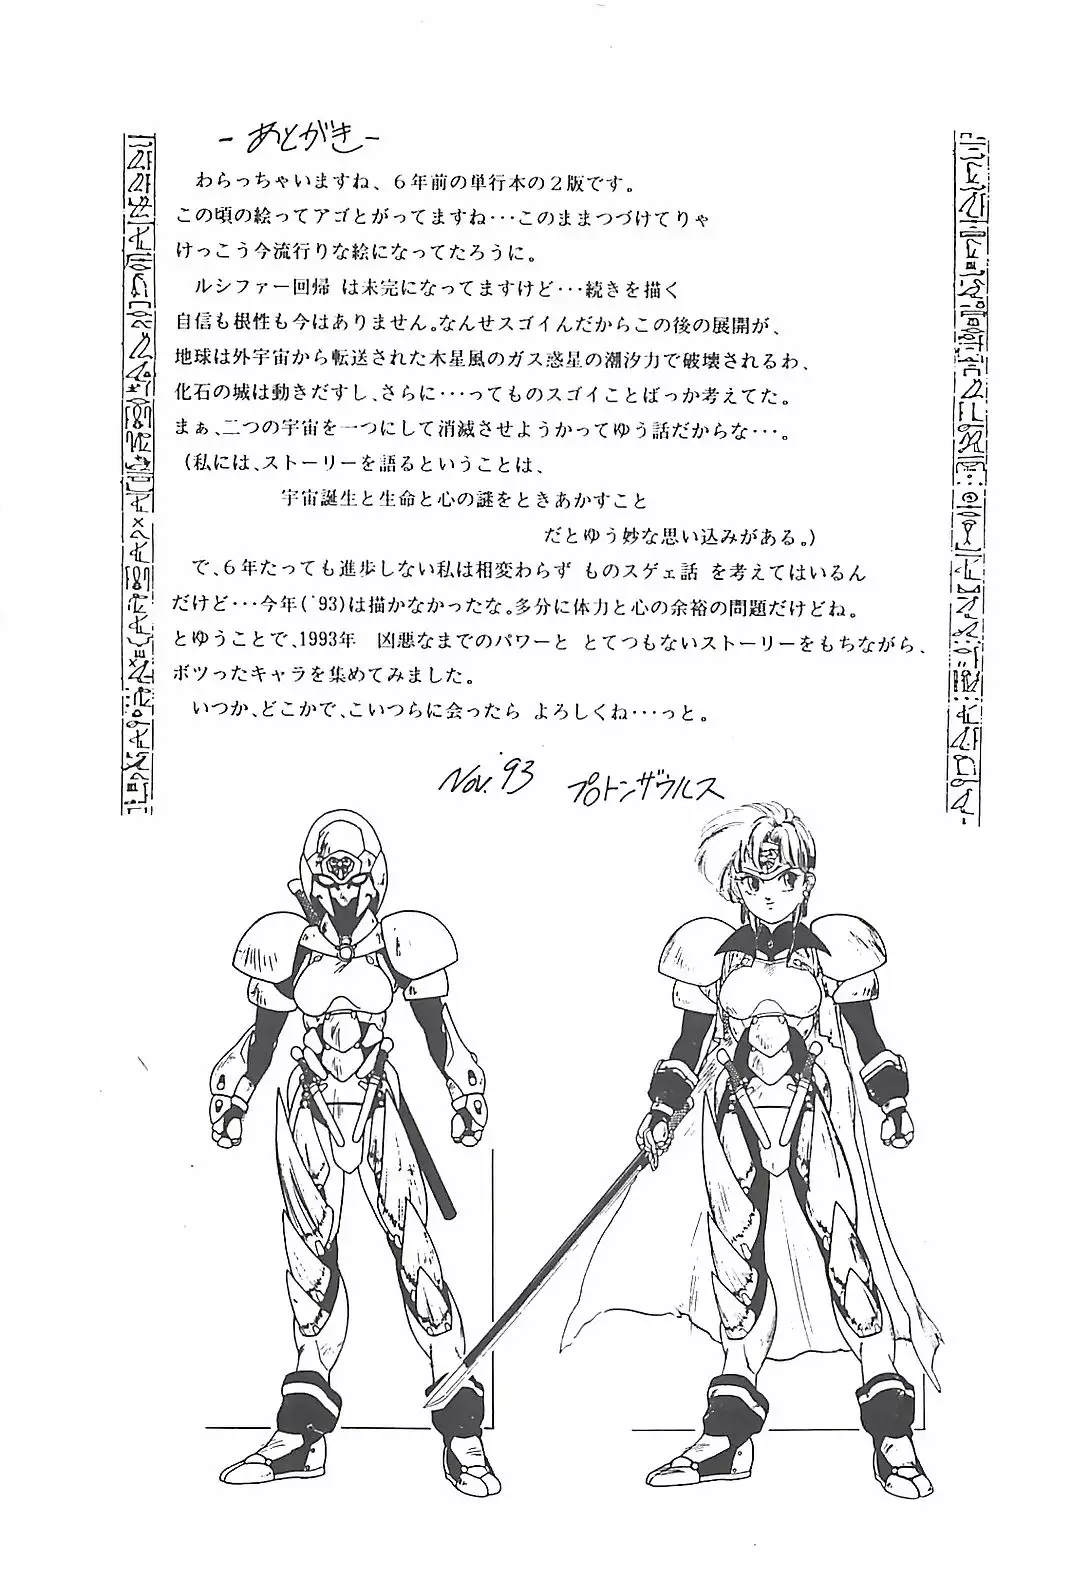 -あとがき-
わらっちゃいますね、６年前の単行本の２版です。
この頃の絵ってアゴとがってますね･･･このままつづけてりゃ
けっこう今流行りな絵になってたろうに。
ルシファー回帰 は未完になってますけど･･･続きを描く
自信も根性も今はありません。なんせスゴイんだからこの後の展開が、
地球は外宇宙から転送された木星風のガス惑星の潮汐力で破壊されるわ、
化石の城は動きだすし、さらに･･･ってものスゴイことばっか考えてた。
まぁ、二つの宇宙を一つにして消滅させようかってゆう話だからな･･･。
（私には、ストーリーを語るということは、
宇宙誕生と生命と心の謎をときあかすこと
だとゆう妙な思い込みがある。）
で、６年たっても進歩しない私は相変わらず ものスゲェ話 を考えてはいるん
だけど･･･今年('93)は描かなかったな。多分に体力と心の余裕の問題だけどね。
とゆうことで、1993年　凶悪なまでのパワーと とてつもないストーリーをもちながら、
ボツったキャラを集めてみました。
いつか、どこかで、こいつらに会ったら よろしくね･･･っと。
Nov. '93 プロトンザウルス